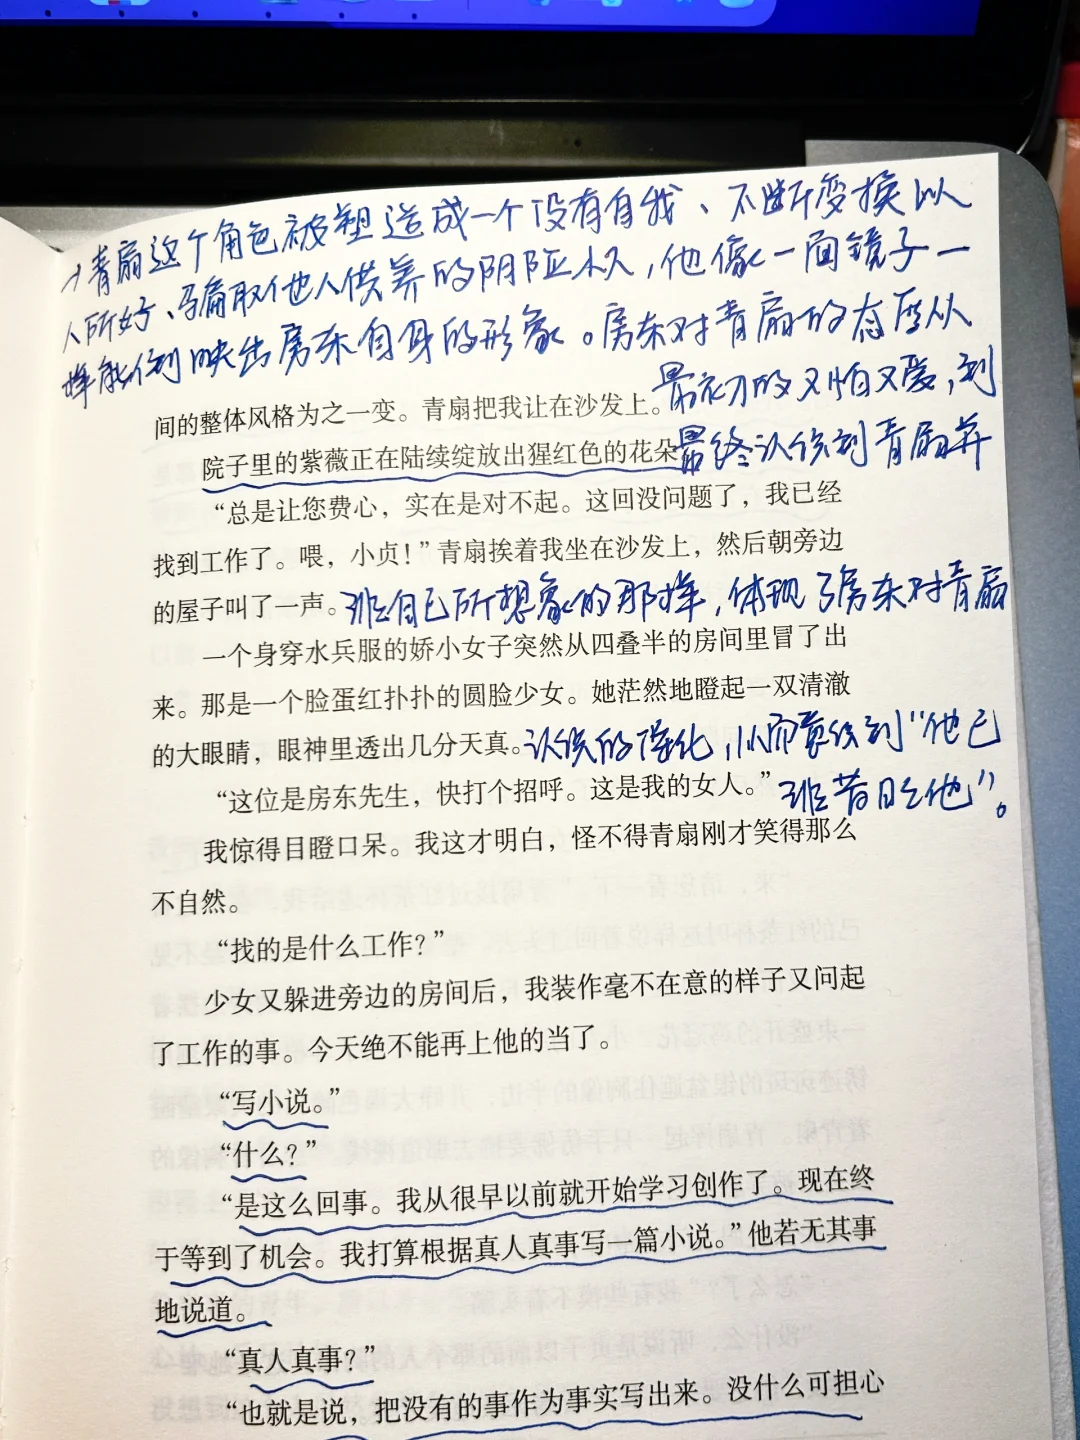 →青扇这个角色被塑造成一个没有自我、不断变换以
人所好、骗取他人供养的阴险小人，他像一面镜子一
样能倒映出房东自身的形象。房东对青扇的态度从
最初的又怕又爱，到
间的整体风格为之一变。青扇把我让在沙发上。
最终认识到青扇并
院子里的紫薇正在陆续绽放出猩红色的花朵
“总是让您费心，实在是对不起。这回没问题了，我已经
找到工作了。喂，小贞！”青扇挨着我坐在沙发上，然后朝旁边
的屋子叫了一声。
非自己所想象的那样，体现了房东对青扇
一个身穿水兵服的娇小女子突然从四叠半的房间里冒了出
来。那是一个脸蛋红扑扑的圆脸少女。她茫然地瞪起一双清澈
的大眼睛，眼神里透出几分天真。
认识的深化，从而意识到“他已
“这位是房东先生，快打个招呼。这是我的女人。”
非昔日之他”。
我惊得目瞪口呆。我这才明白，怪不得青扇刚才笑得那么
不自然。
“找的是什么工作？”
少女又躲进旁边的房间后，我装作毫不在意的样子又问起
了工作的事。今天绝不能再上他的当了。
“写小说。”
“什么？”
“是这么回事。我从很早以前就开始学习创作了。现在终
于等到了机会。我打算根据真人真事写一篇小说。”他若无其事
地说道。
“真人真事？”
“也就是说，把没有的事作为事实写出来。没什么可担心